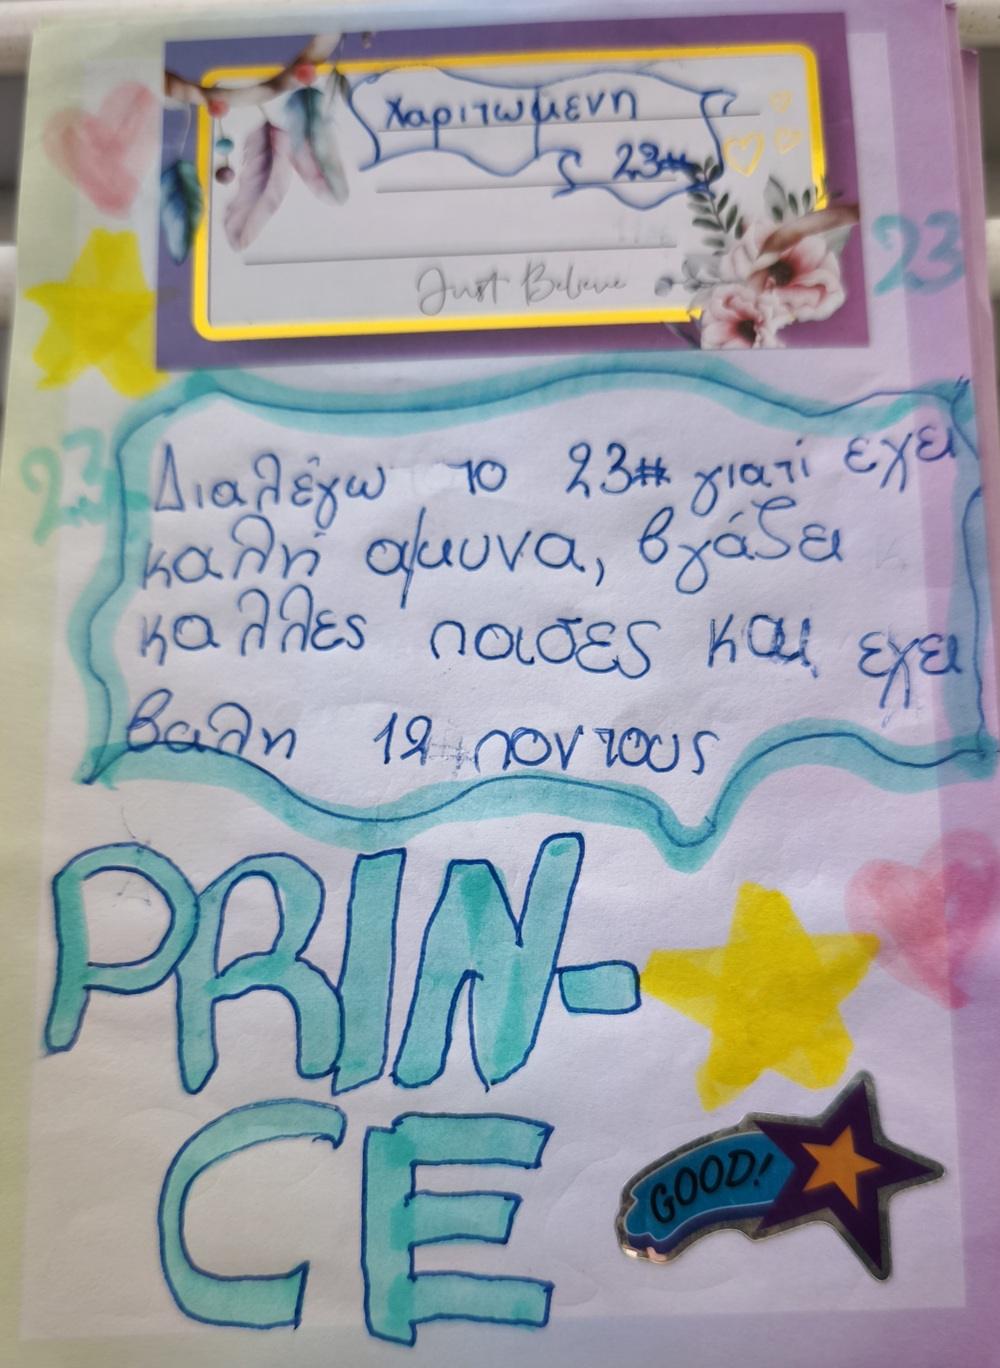 Χαριτωμενη
23#
Just Believe
23
23
Διαλέγω το 23# γιατί εχει
καλή αμυνα, βγάζει
καλλες πασες και εχει
βαλη 12 ποντους
PRIN-
CE
GOOD!